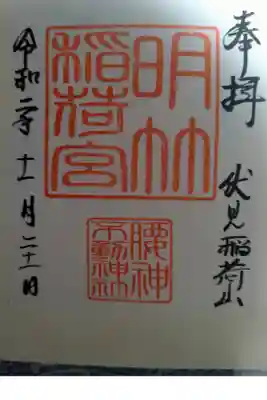 奉拝
伏見稲荷山
明竹
稲荷宮
腰神
不動神
令和二年十一月二十一日